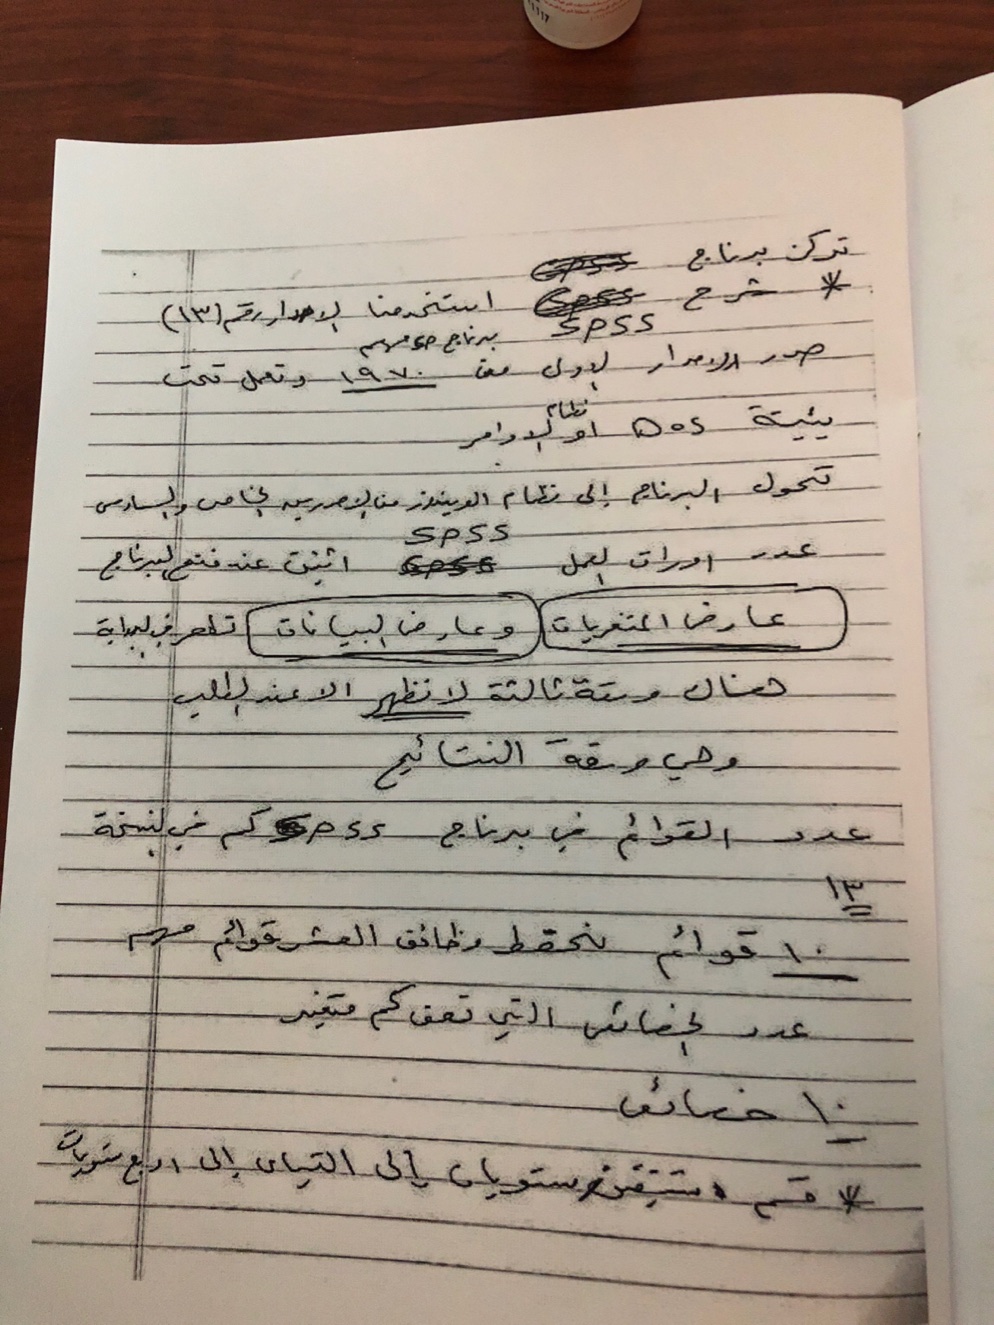 نركن برنامج SPSS
* شرح SPSS استخدمنا الاصدار رقم (١٣)
SPSS
برنامج sp مهم
صدر الاصدار الاول ١٩٧٠ وتعمل تحت
نظام
بيئية Dos او الاوامر
تحول البرنامج إلى نظام الويندوز من الخامس والسادس
SPSS
عدد اوراق العمل SPSS اثنين عند فتح البرنامج
عارض المتغيرات وعارض البيانات تظهر في البداية
هناك ورقة ثالثة لا تظهر الا عند الطلب
وهي ورقة النتائج
عدد القوائم في برنامج SPSS كم في نسخة
١٣
١٠ قوائم وظائف العشر قوائم مهم
عدد الخصائص التي كم متغير
١٠ خصائص
* قسم إلى اربع مستويات